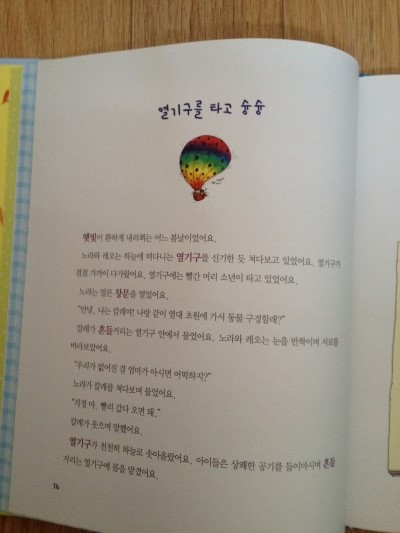 열기구를 타고 슝슝
햇빛이 환하게 내리쬐는 어느 봄날이었어요.
노라와 레오는 하늘에 떠다니는 열기구를 신기한 듯 쳐다보고 있었어요. 열기구가
점점 가까이 다가왔어요. 열기구에는 빨간 머리 소년이 타고 있었어요.
노라는 얼른 창문을 열었어요.
"안녕, 나는 칼레야! 나랑 같이 열대 초원에 가서 동물 구경할래?"
칼레가 흔들거리는 열기구 안에서 물었어요. 노라와 레오는 눈을 반짝이며 서로를
바라보았어요.
"우리가 없어진 걸 엄마가 아시면 어떡하지?"
노라가 칼레를 쳐다보며 물었어요.
"걱정 마. 빨리 갔다 오면 돼."
칼레가 웃으며 말했어요.
열기구가 천천히 하늘로 솟아올랐어요. 아이들은 상쾌한 공기를 들이마시며 흔들
거리는 열기구에 몸을 맡겼어요.
16